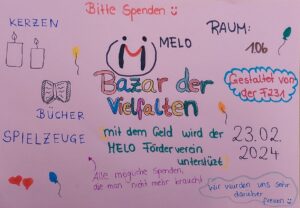 Bitte Spenden
KERZEN
MELO
RAUM:
106
Bazar der
Vielfalten
Gestaltet von
der F231
BÜCHER
SPIELZEUGE
mit dem Geld wird der
MELO Förderverein
unterstützt
23.02.
2024
Alle mögliche Spenden,
die man nicht mehr braucht
Wir würden uns sehr
darüber
freuen